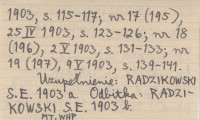 1903, s. 115-117; nr 17 (195),
25 IV 1903, s. 123-126; nr 18
(196), 2 V 1903, s. 131-133; nr
19 (197), 9 V 1903, s. 139-141.
Uzupełnienie: RADZIKOWSKI
S.E. 1903 a. Odbitka: RADZI-
KOWSKI S.E. 1903 b.
MT, WHP